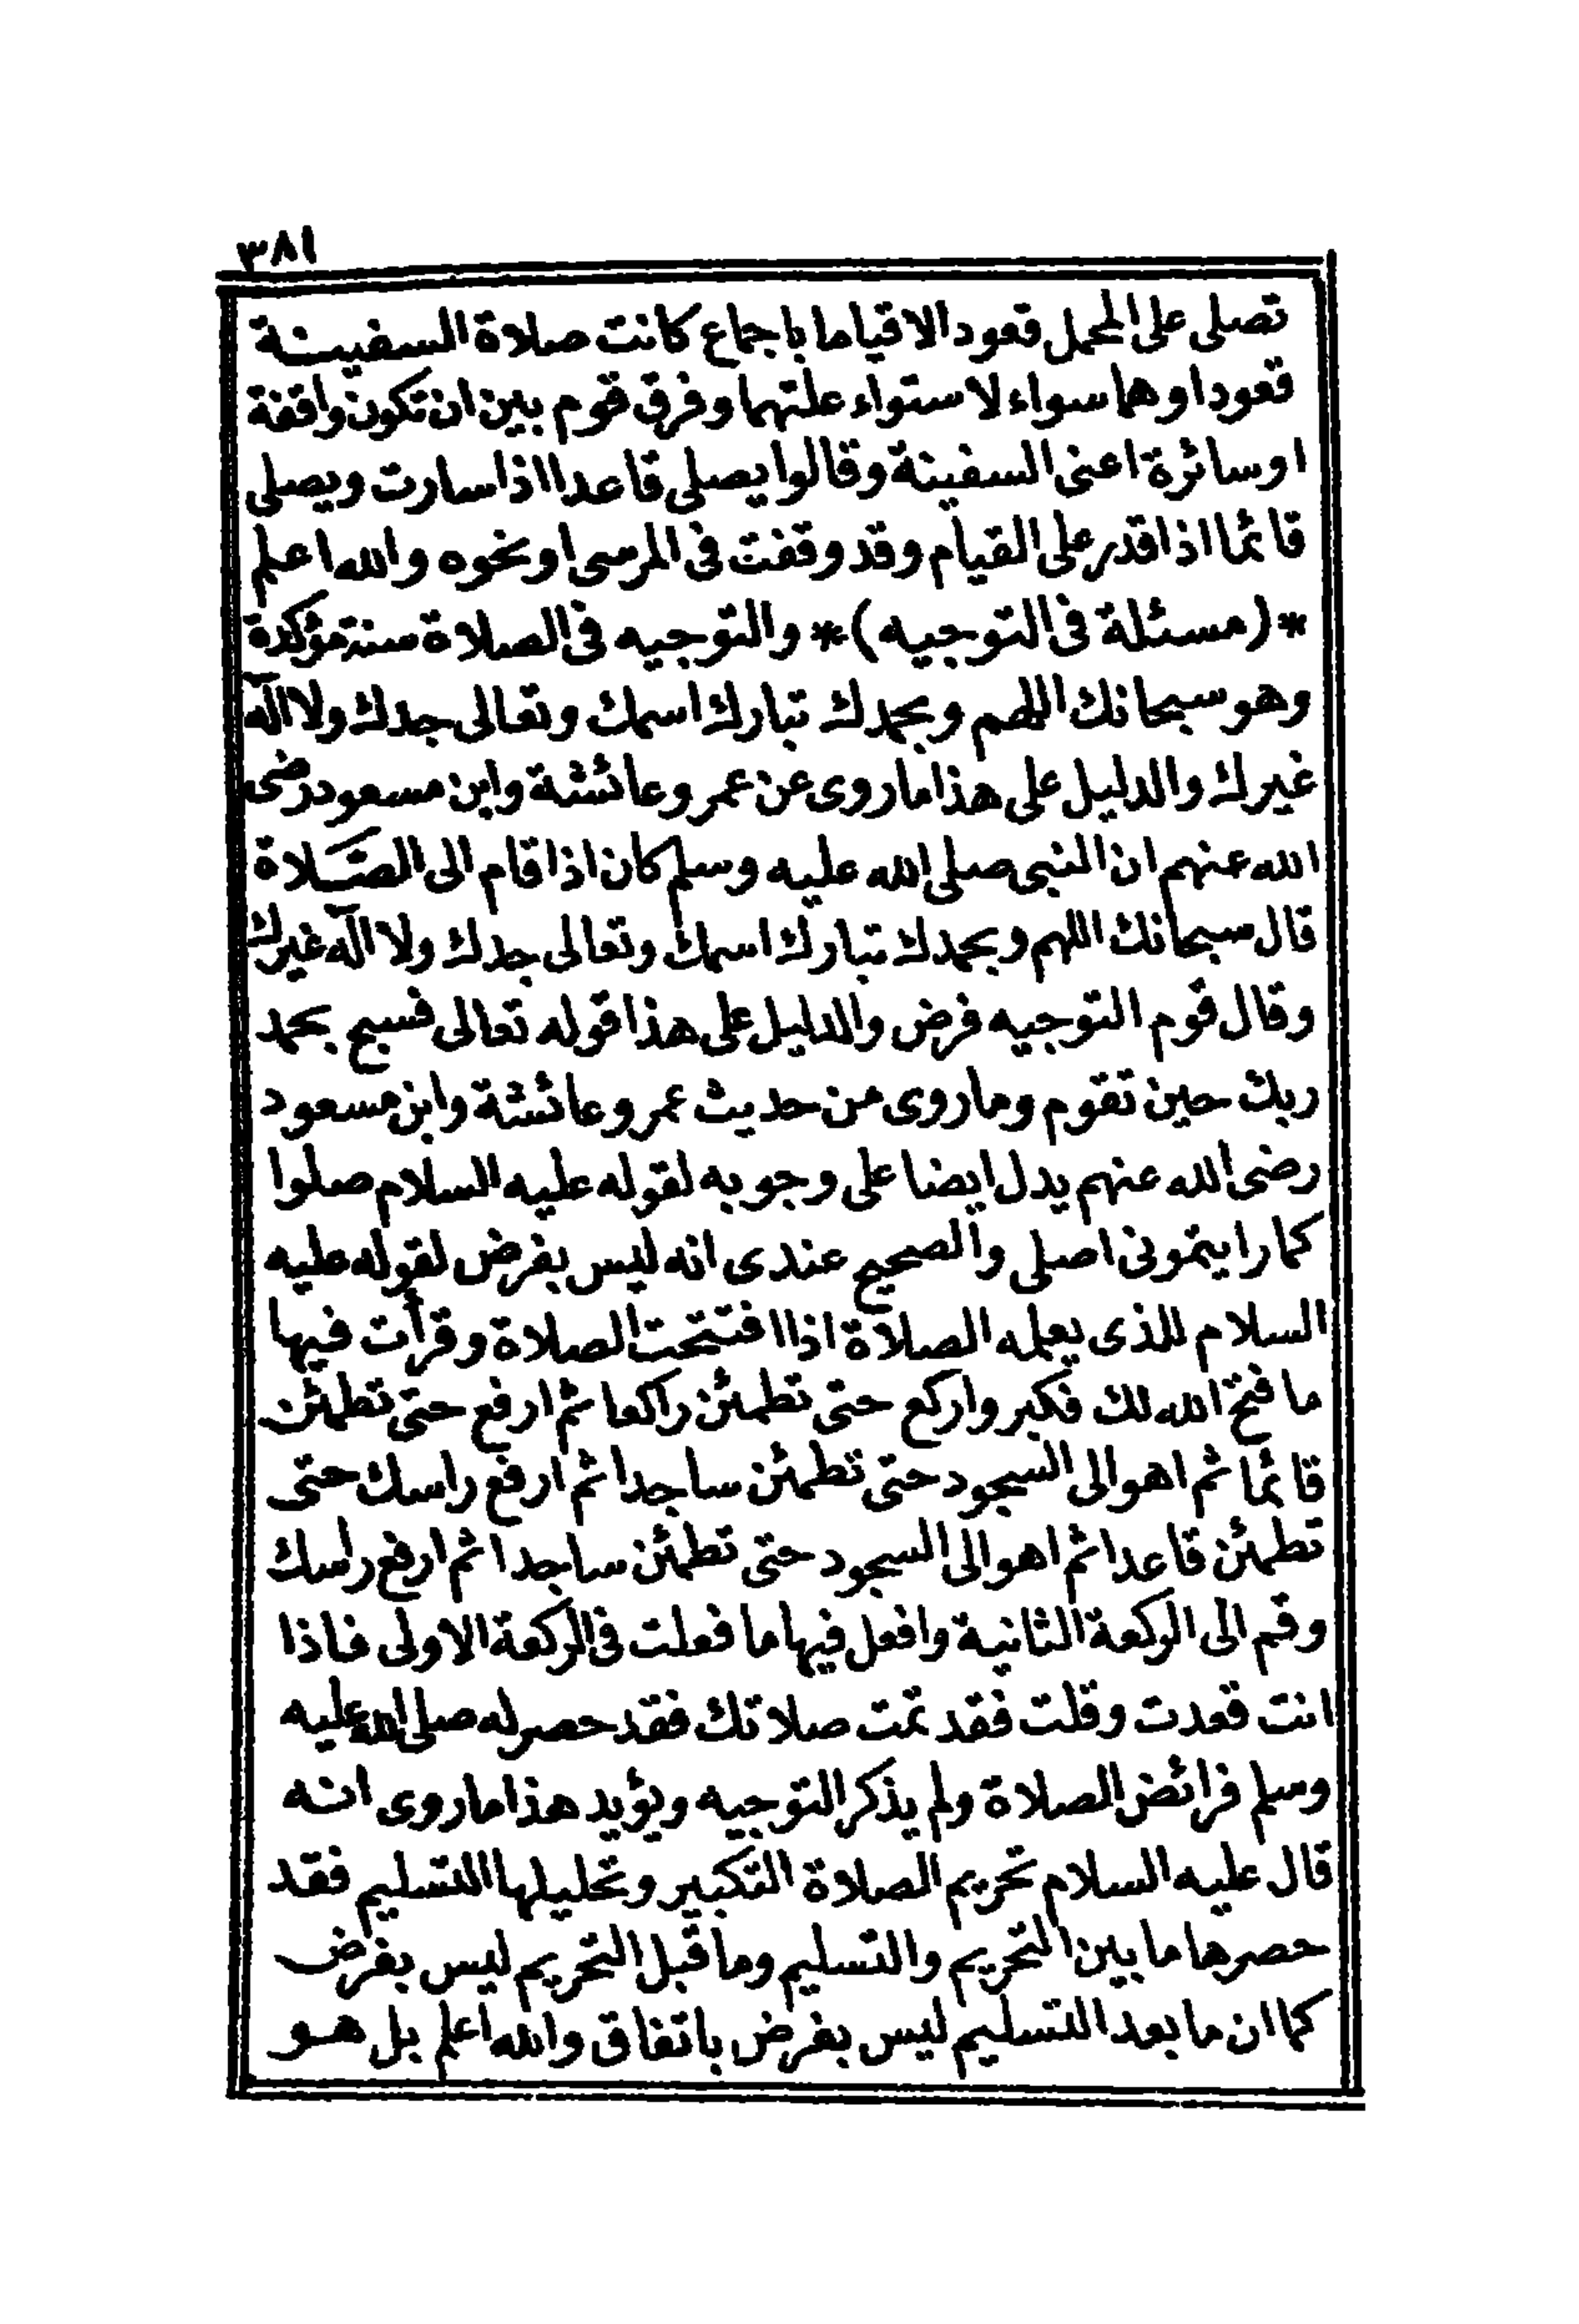 ٣٨١
تصلى على المحمل قعودا لا قياما باجماع كانت صلاة السفينة
قعودا وهما سواء لاستواء علتهما وفرق قوم بين ان تكون واقفة
او سائرة اعنى السفينة وقالوا يصلى قاعدا اذا سارت ويصلى
قائما اذا قدر على القيام وقد وقفت فى المرسى او نحوه والله اعلم
*(مسئلة فى التوجيه)* والتوجيه فى الصلاة سنة مؤكدة
وهو سبحانك اللهم وبحمدك تبارك اسمك وتعالى جدك ولا اله
غيرك والدليل على هذا ما روى عن عمر وعائشة وابن مسعود رضى
الله عنهم ان النبى صلى الله عليه وسلم كان اذا قام الى الصَّلاة
قال سبحانك اللهم وبحمدك تبارك اسمك وتعالى جدك ولا اله غيرك
وقال قوم التوجيه فرض والدليل على هذا قوله تعالى فسبح بحمد
ربك حين تقوم وما روى من حديث عمر وعائشة وابن مسعود
رضى الله عنهم يدل ايضا على وجوبه لقوله عليه السلام صلوا
كما رايتمونى اصلى والصحيح عندى انه ليس بفرض لقوله عليه
السلام للذى يعلمه الصلاة اذا افتتحت الصلاة وقرأت فيها
ما فتح الله لك فكبر واركع حتى تطمئن راكعا ثم ارفع حتى تطمئن
قائما ثم اهو الى السجود حتى تطمئن ساجدا ثم ارفع راسك حتى
تطمئن قاعدا ثم اهو الى السجود حتى تطمئن ساجدا ثم ارفع راسك
وقم الى الركعة الثانية وافعل فيها ما فعلت فى الركعة الاولى فاذا
انت قعدت وقلت فقد تمت صلاتك فقد حصر له صلى الله عليه
وسلم فرائض الصلاة ولم يذكر التوجيه ويؤيد هذا ما روى انه
قال عليه السلام تحريم الصلاة التكبير وتحليلها التسليم فقد
حصرها ما بين التحريم والتسليم وما قبل التحريم ليس بفرض
كما ان ما بعد التسليم ليس بفرض باتفاق والله اعلم بل هو